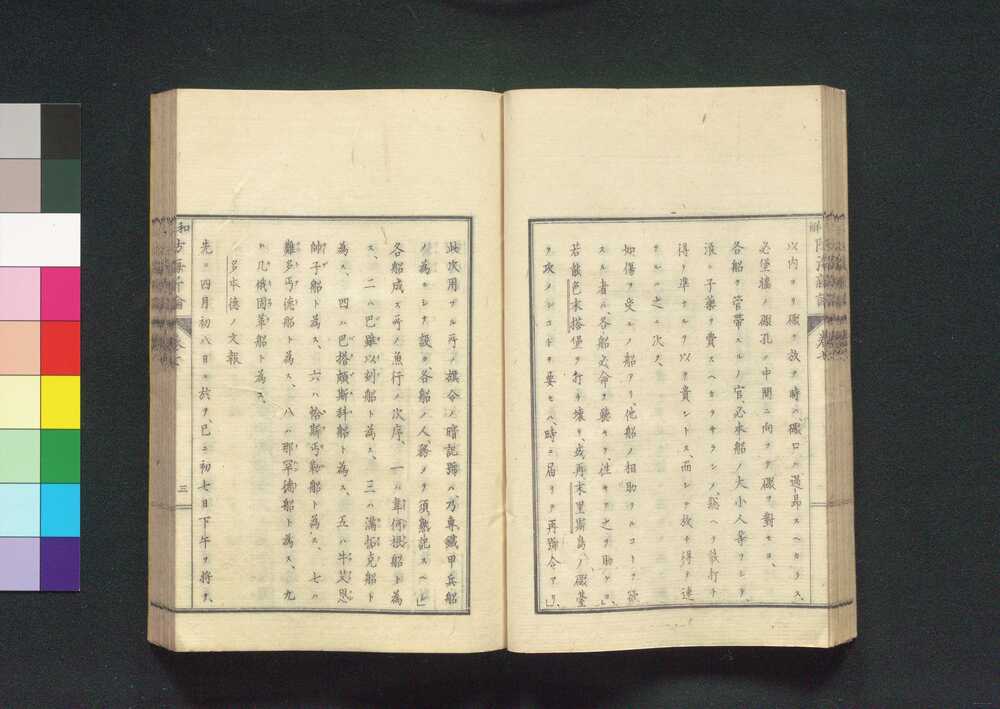 以内ヨリ礮ヲ放ツ時ハ、礮口ハ過昂スヘカラス、
必堡墻ノ礮孔ノ中間ニ向テ礮ヲ對セヨ、
各船ヲ管帶スルノ官、必本船ノ大小人等ヲシテ、
浪ニ子藥ヲ費スヘカラサラシメ、総ヘテ放打ト
得ヲ準ナルヲ以テ貴シトス、而シテ放チ得テ速
ナルハ之ニ次ス、
如傷ヲ受ルノ船アリ、他船ノ相助クルコトヲ欲
スル者ハ、各船必命ヲ聽キテ、往キテ之ヲ助ケヨ、
若敵色末搭堡ヲ打チ壊リ、或再末里斯島ノ礮臺
ヲ攻メンコトヲ要セハ、時ニ届リテ再諭令アリ」、
此次用フル所ノ旗令ノ暗記號ハ、乃専鐵甲兵船
ノ為ニシテ設ク、各船ノ人、務メテ須熟記スヘシ」
各船成ス所ノ魚行ノ次序、一ハ韋何根船ト為
ス、二ハ巴雖以刻船ト為ス、三ハ満拓克船ト
為ス、四ハ巴搭頗斯科船ト為ス、五ハ牛
帥子船ト為ス、六ハ恰斯丐勒船ト為ス、七ハ
難多丐德船ト為ス、八ハ那罕德船ト為ス、九
ハ几俄固革船ト為ス、
多本德ノ文報
先ニ四月初八日ニ於テ、已ニ初七日下午ヲ將テ、
三